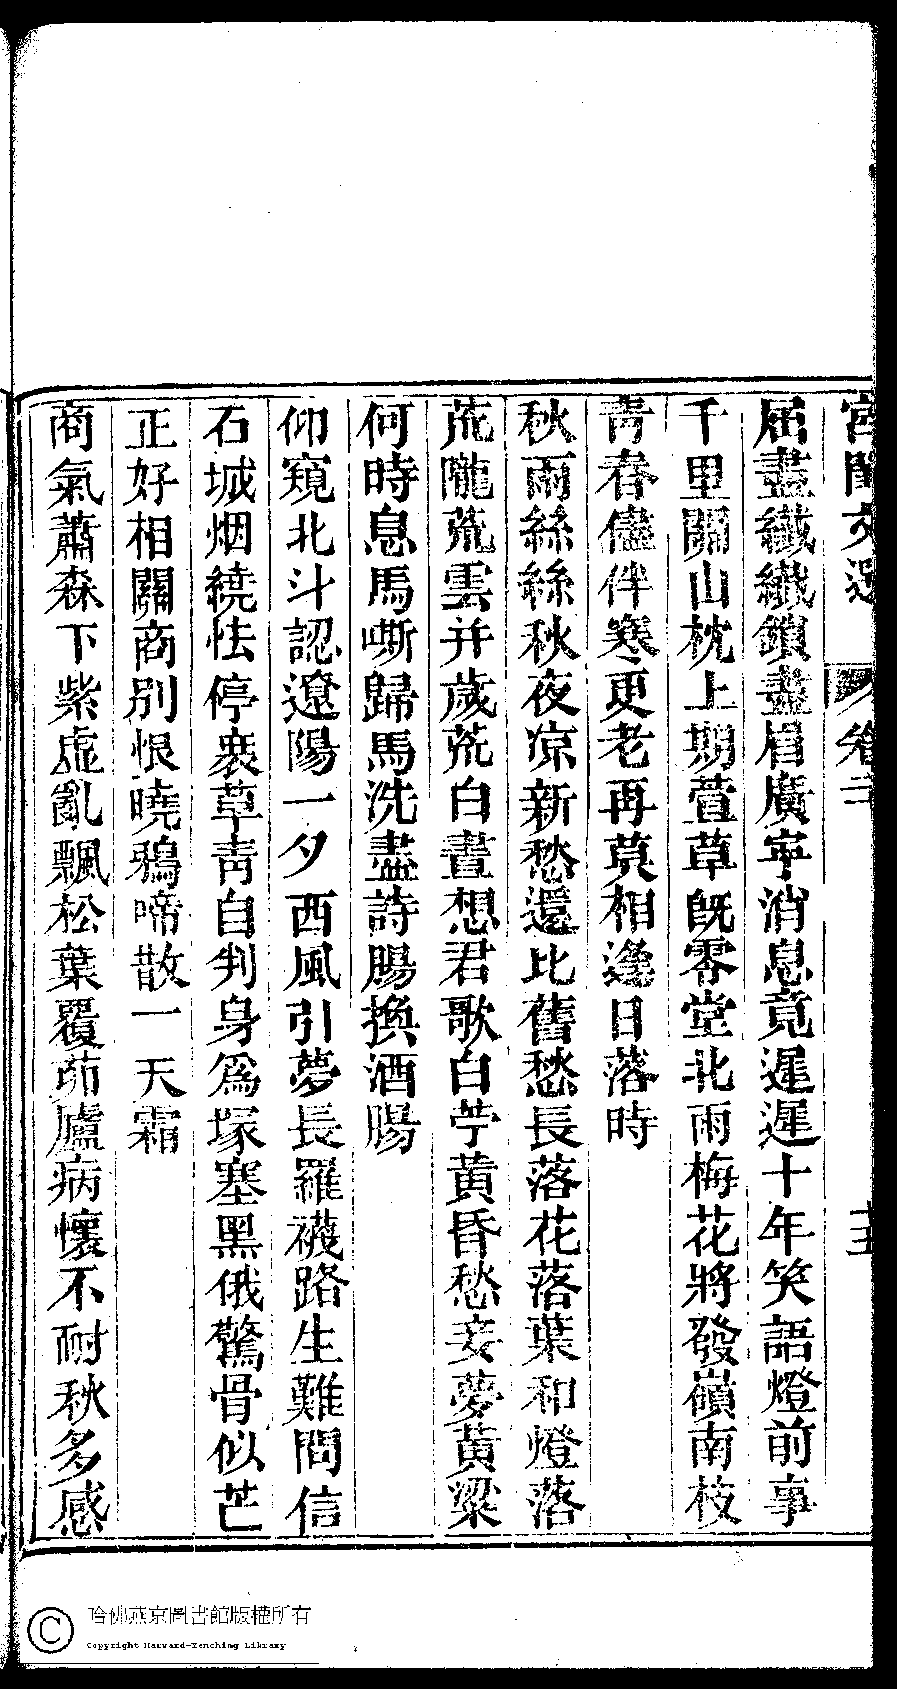 宮閨文選 卷二十 十三
屈盡纖纖鎖盡眉廣寧消息竟遲遲十年笑語燈前事
千里關山枕上期萱草旣零堂北雨梅花將發嶺南枝
靑春儘伴寒更老再莫相逢日落時
秋雨絲絲秋夜凉新愁還比舊愁長落花落葉和燈落
荒隴荒雲并歲荒白晝想君歌白苧黃昏愁妾夢黃粱
何時息馬嘶歸馬洗盡詩腸換酒腸
仰窺北斗認遼陽一夕西風引夢長羅襪路生難問信
石城烟繞怯停衰草靑自判身爲塚塞黑俄驚骨似芒
正好相關商別恨曉鴉啼散一天霜
商氣蕭森下紫虛亂飄松葉覆茆廬病懷不耐秋多感
哈佛燕京圖書館版權所有
Copyright Harvard-Yenching Library